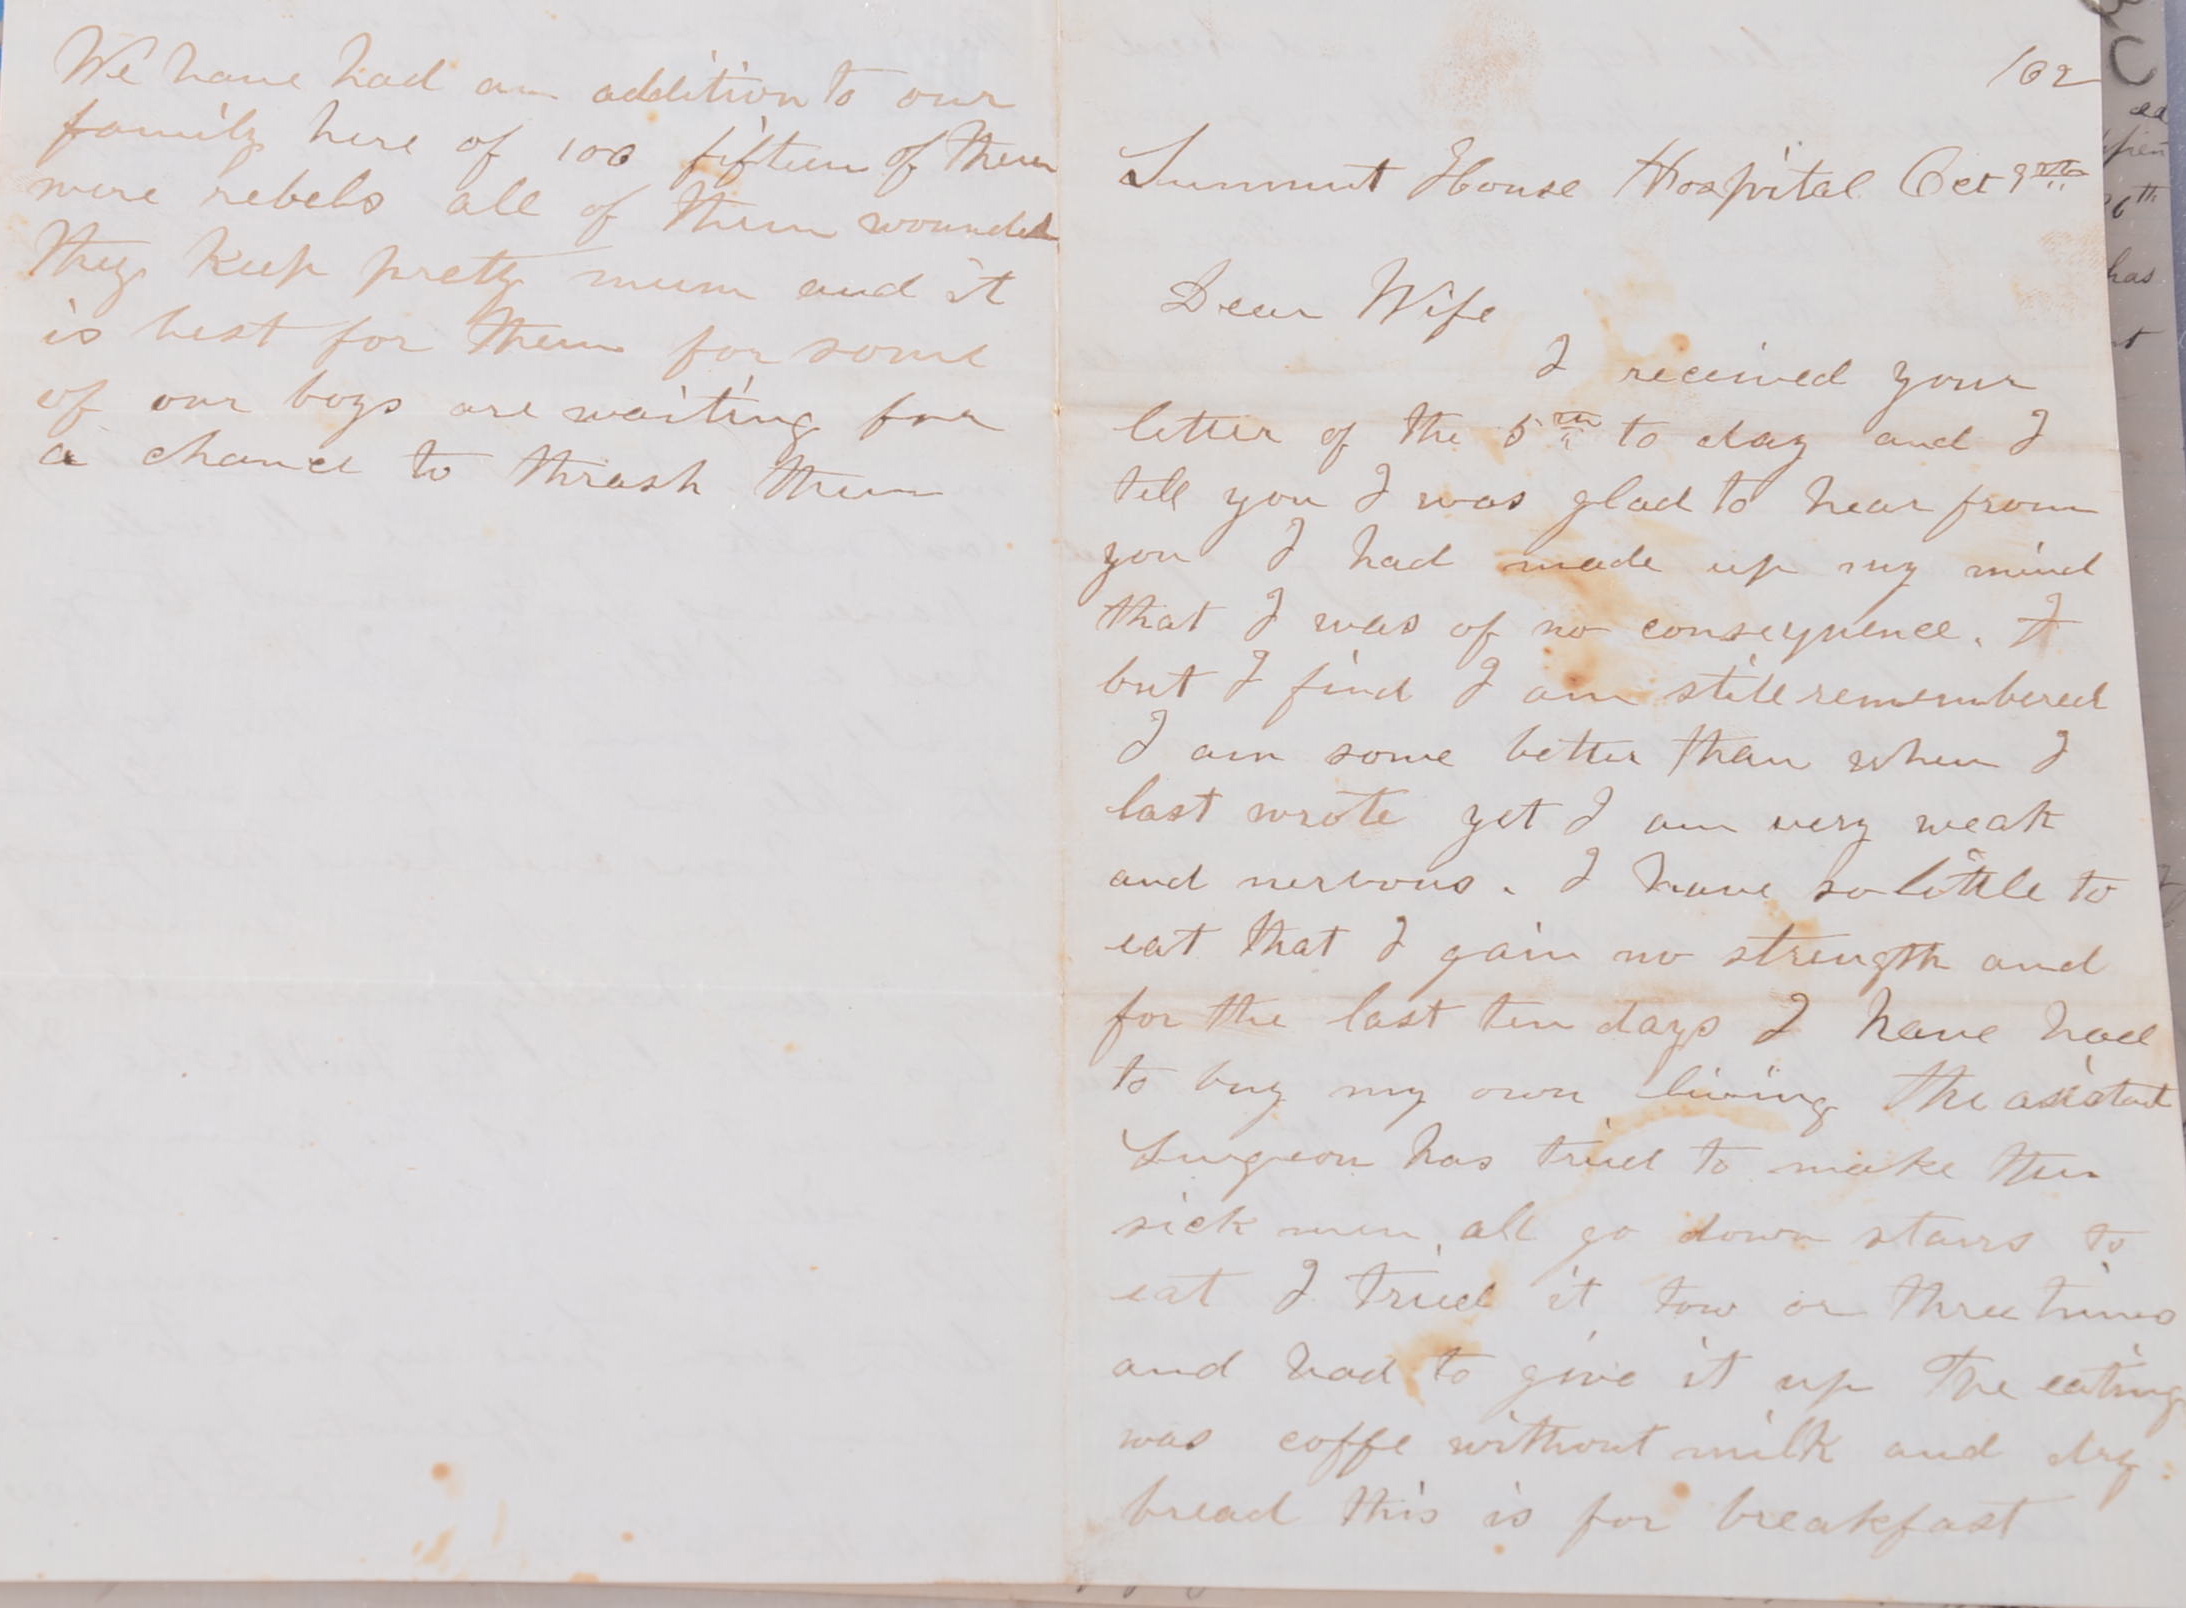 We have had an addition to our
family here of 100 fifteen of them
were rebels all of them wounded
they keep pretty mum and it
is best for them for some
of our boys are waiting for
a chance to thrash them
102
Summit House Hospital Oct 9th
Dear Wife
I received your
letter of the 5th to day and I
tell you I was glad to hear from
you I had made up my mind
that I was of no consequence. I
but I find I am still remembered
I am some better than when I
last wrote yet I am very weak
and nervous. I have so little to
eat that I gain no strength and
for the last ten days I have had
to buy my own living The asistant
Surgeon has tried to make the
sick men all go down stairs to
eat I tried it tow or three times
and had to give it up The eating
was coffe without milk and dry
bread this is for breakfast
ed
6th
has